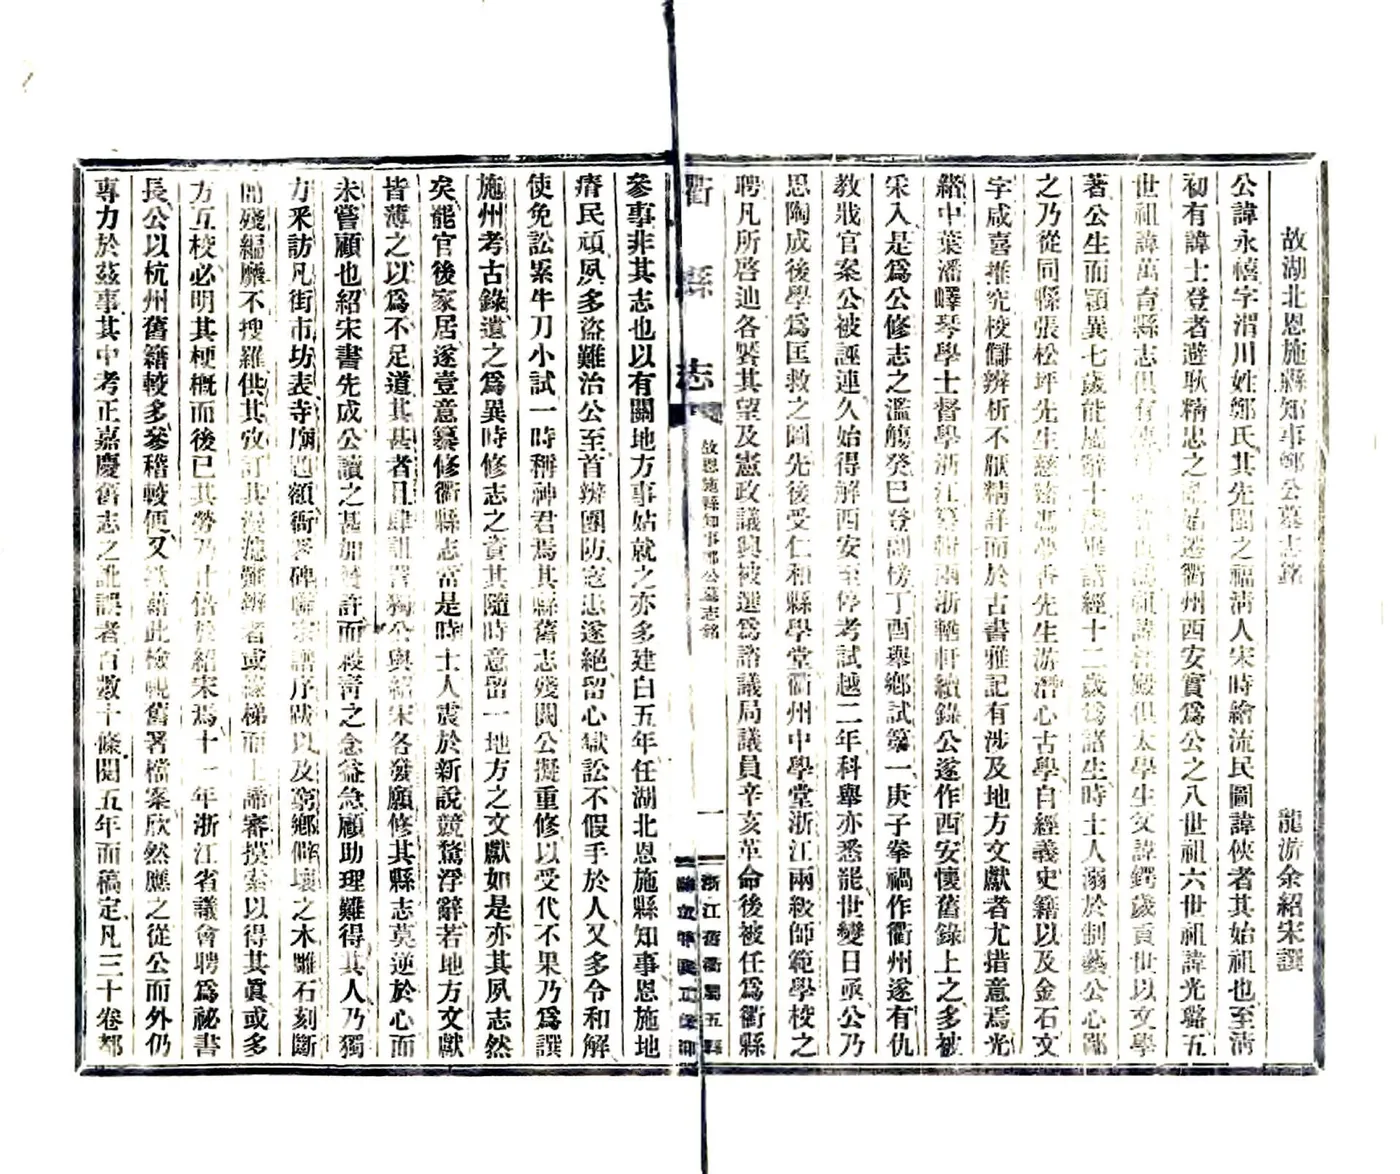 故湖北恩施縣知事鄭公墓志銘
龍游余紹宋譔
公諱永禧字渭川姓鄭氏其先閩之福淸人宋時繪流民圖諱俠者其始祖也至淸
初有諱士登者避耿精忠之亂始遷衢州西安實爲公之八世祖六世祖諱光璐五
世祖諱萬育縣志俱有傳 祖諱 俱太學生父諱鍔歲貢世以文學
著公生而穎異七歲能屬辭十歲畢諸經十二歲爲諸生時士人溺於制藝公心鄙
之乃從同縣張松坪先生慈谿馮夢香先生游潛心古學自經義史籍以及金石文
字咸喜推究校讎辨析不厭精詳而於古書雅記有涉及地方文獻者尤措意焉光
緒中葉潘嶧琴學士督學浙江纂輯兩浙輶軒續錄公遂作西安懷舊錄上之多被
采入是爲公修志之濫觴癸巳登副榜丁酉舉鄉試第一庚子拳禍作衢州遂有仇
教戕官案公被誣連久始得解西安至停考試越二年科舉亦悉罷世變日亟公乃
思陶成後學爲匡救之圖先後受仁和縣學堂衢州中學堂浙江兩級師範學校之
聘凡所啓迪各饜其望及憲政議興被選爲諮議局議員辛亥革命後被任爲衢縣
衢縣志
故恩施縣知事鄭公墓志銘
一
浙江舊衢屬五縣
參事非其志也以有關地方事姑就之亦多建白五年任湖北恩施縣知事恩施地
瘠民頑夙多盜難治公至首辦團防宄忠遂絕留心獄訟不假手於人又多令和解
使免訟累牛刀小試一時稱神君焉其縣舊志殘闕公擬重修以受代不果乃爲譔
施州考古錄遺之爲異時修志之資其隨時意留一地方之文獻如是亦其夙志然
矣罷官後家居遂壹意纂修衢縣志當是時士人震於新說競騖浮辭若地方文獻
皆薄之以爲不足道其甚者且肆詛詈獨公與紹宋各發願修其縣志莫逆於心而
未嘗顧也紹宋書先成公讀之甚加 許而殺靑之念益急顧助理難得其人乃獨
力釆訪凡街市坊表寺廟匾額衙署碑 宗譜序跋以及窮鄉僻壤之木雕石刻斷
簡殘編靡不搜羅供其攷訂其漫漶難辨者或緣梯而上諦審摸索以得其眞或多
方互校必明其梗概而後已其勞乃什倍於紹宋焉十一年浙江省議會聘爲祕書
長公以杭州舊籍較多參稽較便又 藉此檢覘舊署檔案欣然應之從公而外仍
專力於茲事其中考正嘉慶舊志之訛誤者百數十條閱五年而稿定凡三十卷都